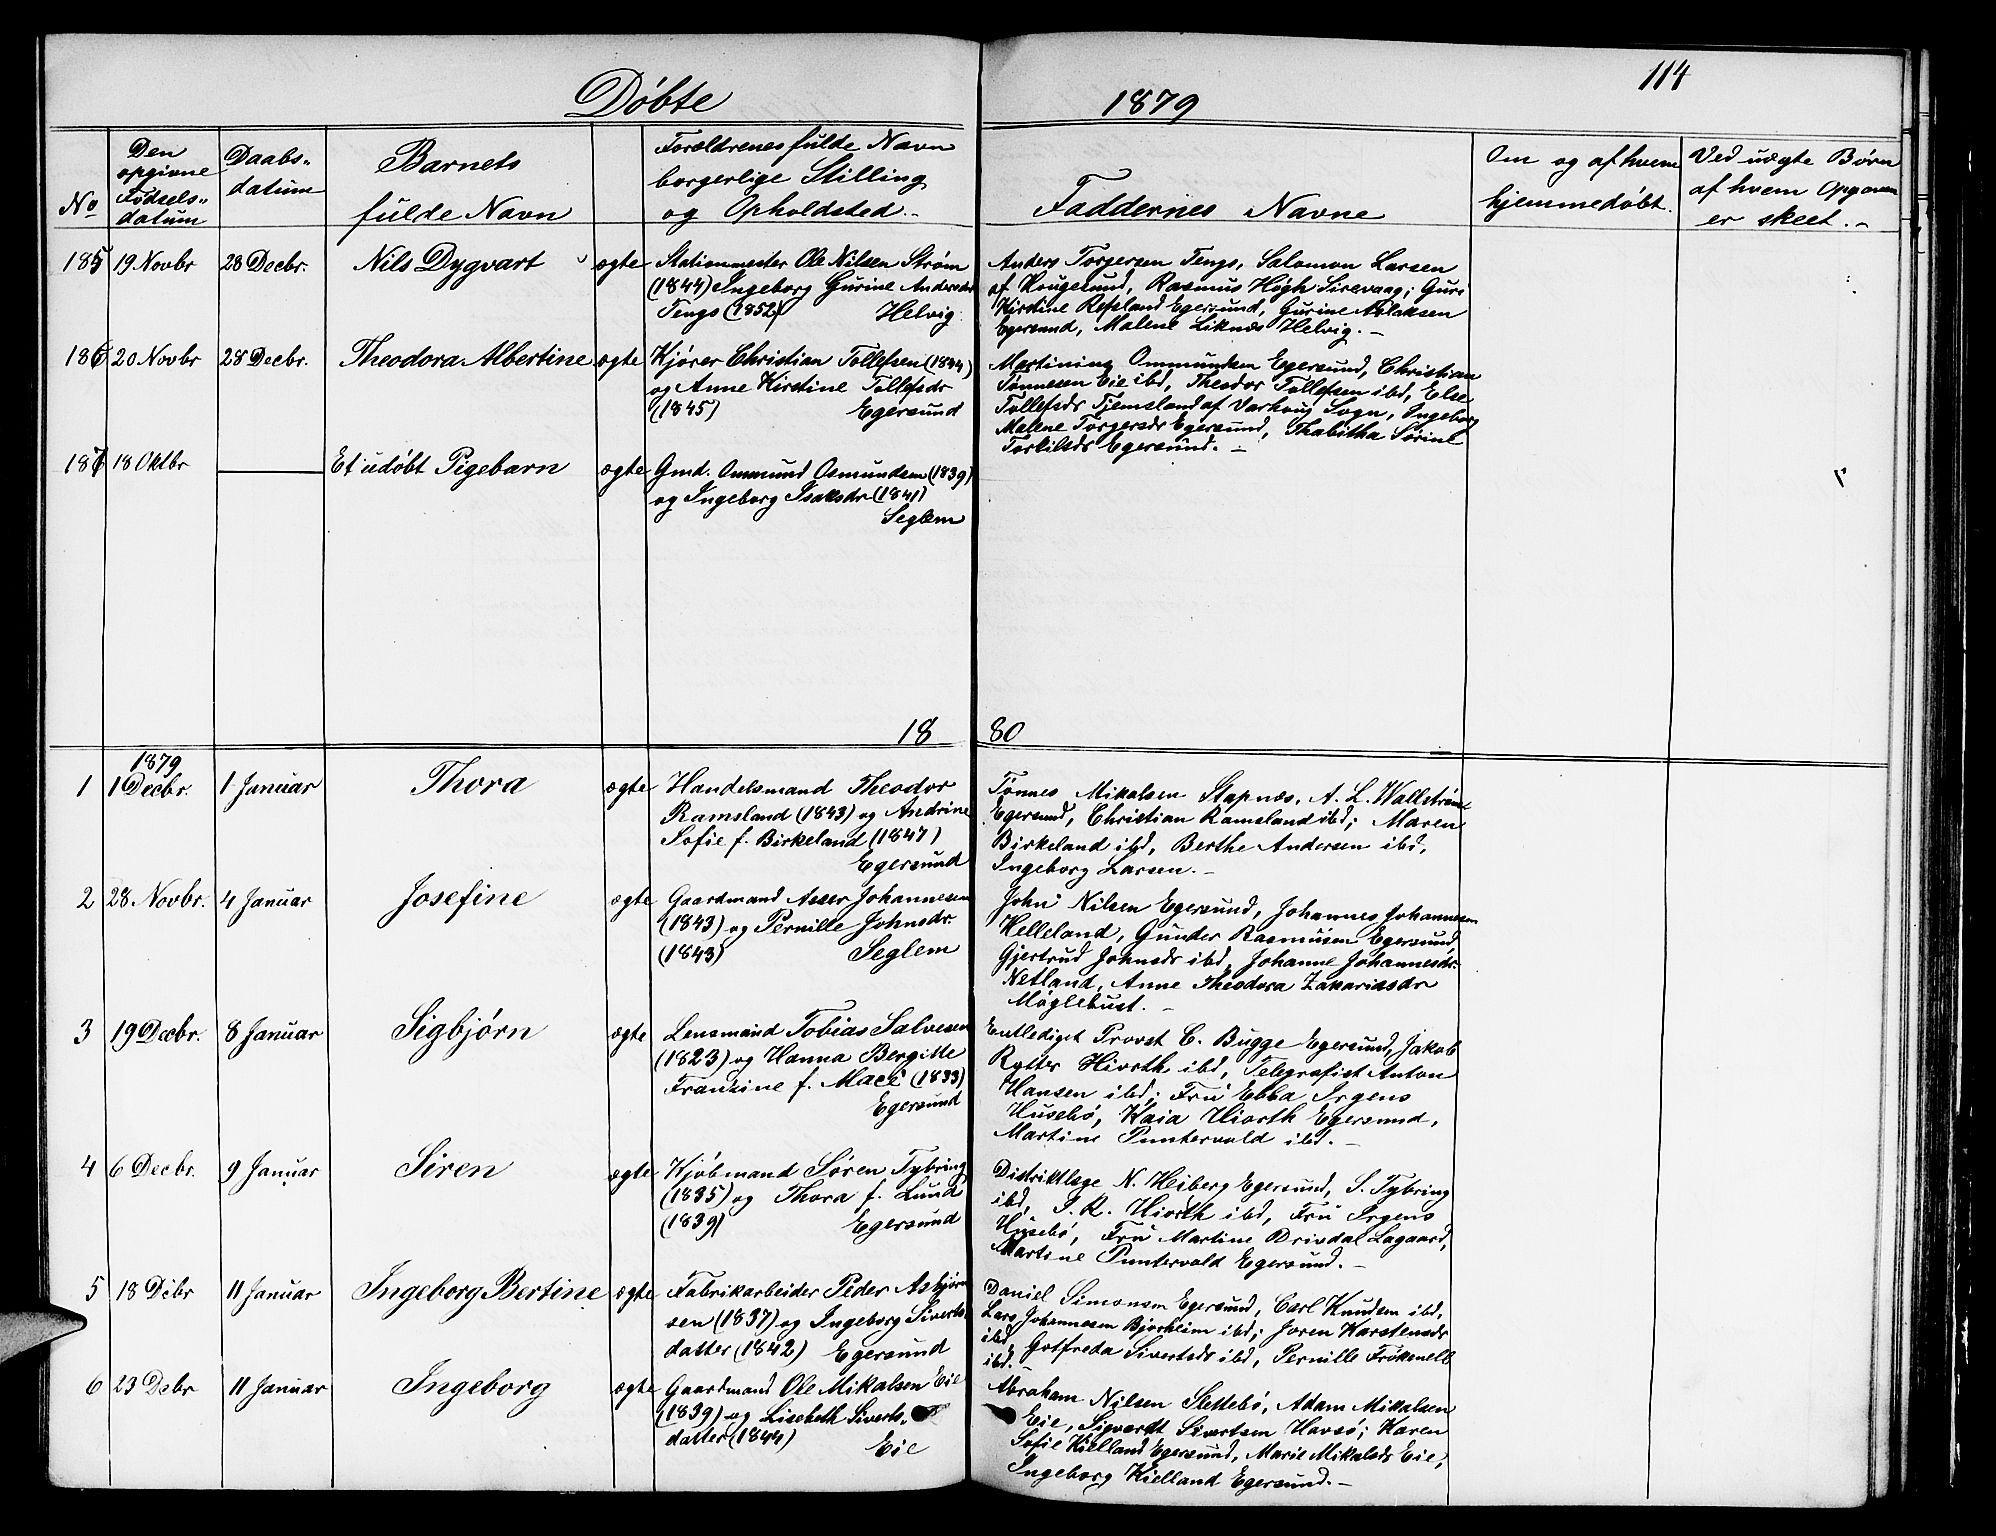 114
Döbte 1879
No
Den opgivne Fødsels datum
Daabs datum
Barnets fulde Navn
Forældrenes fulde Navn
borgerlige Stilling
og Opholdsted.
Faddernes Navne
Om og af hvem
hjemmedøbt.
Ved uægte Børn
af hvem Opgaven
er skeet.
185 19 Novbr 28 Decbr. Nils Dygvart ægte
Stationmester Ole Nilsen Strøm
(1844) Ingeborg Gurine Andersdr
Tengs (1852) Helvig.
Anders Torgersen Tengs, Salomon Larsen
af Hougesund, Rasmus Høgh Sirevaag; Guri
Kirstine Refsland Egersund, Gurine Aslaksen
Egersund, Malene Liknæs Helvig.
186 20 Novbr 28 Decbr. Theodora Albertine ægte
Kjører Christian Tollefsen (1844)
og Anne Kirstine Tollefsdr
(1845) Egersund
Martinius Ommundsen Egersund, Christian
Tønnesen Eie ibd, Theodor Tollefsen ibd, Else
Tollefsdr Tjemsland af Varhoug Sogn, Ingeborg
Malene Torgersdr Egersund, Thabitha Sørine
Torkilsdr Egersund.
187 18 Oktbr Et udøbt Pigebarn ægte
Gmd. Ommund Osmundsen (1839)
og Ingeborg Isaksdr (1841)
Seglem
1880
1879
1 1 Decbr. 1 Januar Thora ægte
Handelsmand Theodor
Ramsland (1843) og Andrine
Sofie f. Birkeland (1847)
Egersund
Tønnes Mikalsen Stapnæs, A. L. Wallstrøm
Egersund, Christian Ramsland ibd; Maren
Birkeland ibd, Berthe Andersen ibd,
Ingeborg Larsen.
2 28 Novbr. 4 Januar Josefine ægte
Gaardmand Asser Johannesen
(1843) og Pernille Johnsdr
(1843) Seglem
John Nilsen Egersund, Johannes Johannesen
Helleland, Gunder Rasmusen Egersund,
Gjertrud Johnsdr ibd, Johanne Johannesdr
Netland, Anne Theodora Zakariasdr
Møglebust.
3 19 Decbr. 8 Januar Sigbjørn ægte
Lensmand Tobias Salvesen
(1823) og Hanna Bergitte
Franzine f. Macé (1833)
Egersund
Entlediget Provst C. Bugge Egersund, Jakob
Rytter Hiorth ibd, Telegrafist Anton
Hansen ibd; Fru Ebba Irgens
Husebø, Kaia Hiorth Egersund,
Martine Puntervold ibd.
4 6 Decbr. 9 Januar Siren ægte
Kjøbmand Søren Tybring
(1835) og Thora f. Lund
(1839) Egersund
Distriktlæge N. Heiberg Egersund, S. Tybring
ibd, J. R. Hiorth ibd, Fru Irgens
Husebø, Fru Martine Drivdal Lagaard,
Martine Puntervold Egersund.
5 18 Debr 11 Januar Ingeborg Bertine ægte
Fabrikarbeider Peder Asbjørn
sen (1837) og Ingeborg Siverts
datter (1842) Egersund
Daniel Simonsen Egersund, Carl Knudsen ibd,
Lars Johannesen Bjorheim ibd; Joren Karstensdr
ibd, Gotfreda Sivertsdr ibd, Pernille Frökenell
ibd.
6 23 Debr 11 Januar Ingeborg ægte
Gaardmand Ole Mikalsen Eie
(1839) og Lisebeth Siverts
datter (1844) Eie
Abraham Nilsen Slettebø, Adam Mikalsen
Eie, Sigvardt Sivertsen Havsø; Karen
Sofie Kielland Egersund, Marie Mikalsdr Eie,
Ingeborg Kielland Egersund.